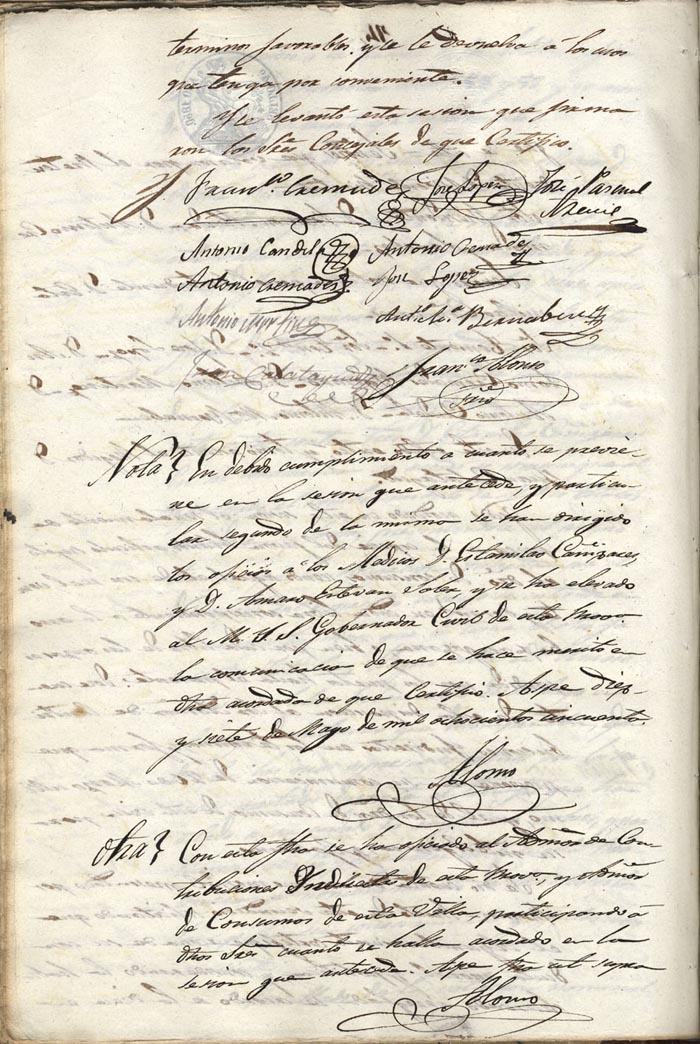 terminos favorables, y se le devuelva á los usos
que tenga por conveniente.
Y se levantó esta sesion que firma
ron los Sres Concejales de que Certifico.
Franco. Cremades José Lopez José Pascual
Antonio Candela Antonio Cremades
Antonio Cremades José Lopez
Antonio Martinez Anto. Bernabeu
Juan Calatayud Franco Alonso
Srio
Nota? En debido cumplimiento a cuanto se previe-
ne en la sesion que antecede, y particu
lar segundo de la misma se han dirigido
los oficios á los Medicos D. Estanislao
y D. Amaro Estevan Soler, y se ha elevado
al M. Y. S. Gobernador Civil de esta Prova.
la comunicacion de que se hace merito en
dho acordado de que Certifico. Aspe diez
y siete de Mayo de mil ochocientos cincuenta.
Alonso
Otra? Con esta fha se ha oficiado al Admor. de Con
tribuciones Yndirectas de esta Prova, y Admor
de Consumos de esta Villa, participando á
dhos Sres cuanto se halla acordado en la
sesion que antecede. Aspe fha ut supra
Alonso